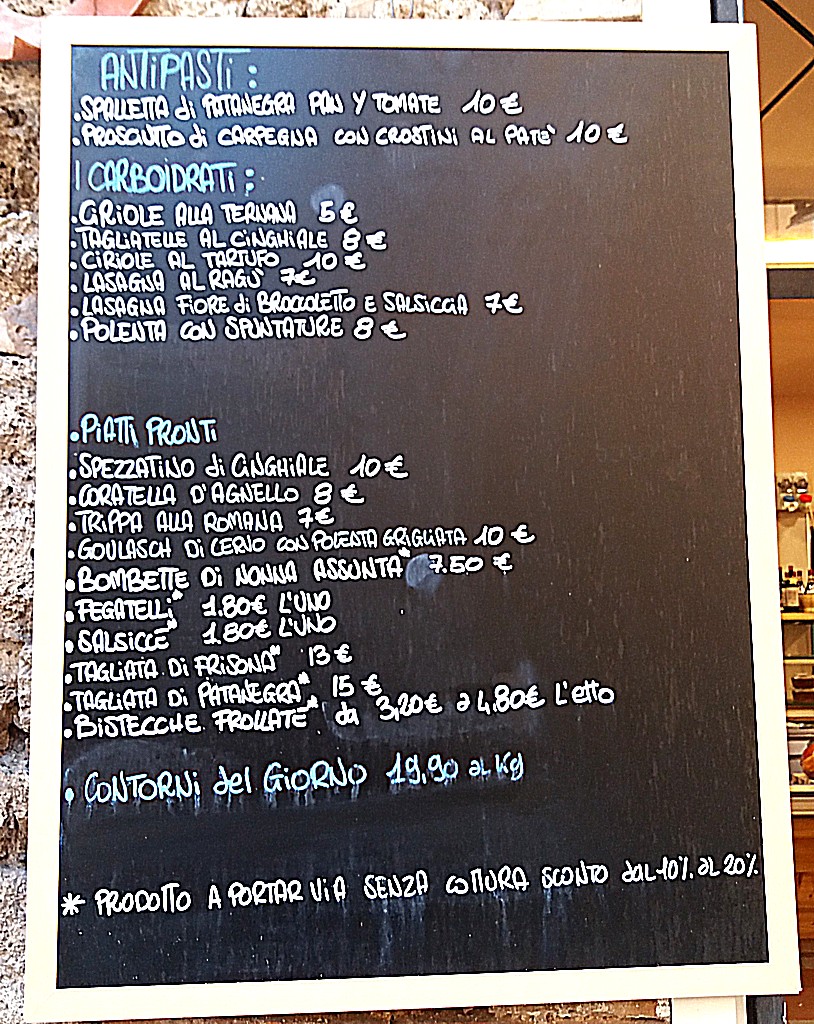 ANTIPASTI :
• SPALLETTA di PATANEGRA PAN Y TOMATE 10 €
• PROSCIUTTO di CARPEGNA CON CROSTINI AL PATE' 10 €
I CARBOIDRATI :
• CIRIOLE ALLA TERNANA 5 €
• TAGLIATELLE AL CINGHIALE 8 €
• CIRIOLE AL TARTUFO 10 €
• LASAGNA AL RAGU' 7€
• LASAGNA FIORE di BROCCOLETTO E SALSICCIA 7€
• POLENTA CON SPUNTATURE 8 €
• PIATTI PRONTI
• SPEZZATINO di CINGHIALE 10 €
• CORATELLA D'AGNELLO 8 €
• TRIPPA ALLA ROMANA 7€
• GOULASCH DI CERVO CON POLENTA GRIGLIATA 10 €
• BOMBETTE DI NONNA ASSUNTA* 7.50 €
• FEGATELLI* 1.80€ L'UNO
• SALSICCE* 1.80€ L'UNO
• TAGLIATA DI FRISONA* 13 €
• TAGLIATA DI PATANEGRA* 15 €
• BISTECCHE FROLLATE* da 3,20€ a 4,80€ L'etto
• CONTORNI del GIORNO 19,90 al Kg
* PRODOTTO A PORTAR VIA SENZA COTTURA SCONTO dal 10% al 20%